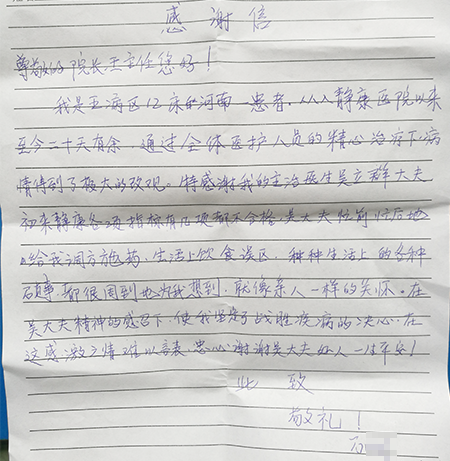 感谢信
尊敬的院长王主任您好！
我是五病区12床的河南一患者，从入静康医院以来
至今二十天有余，通过全体医护人员的精心治疗下病
情得到了极大的改观。特感谢我的主治医生吴立群大夫
初来静康各项指标有几项都不合格，吴大夫忙前忙后地
给我调方施药，生活上饮食误区，种种生活上的各种
琐事，都很周到地为我想到，就像亲人一样的关怀。在
吴大夫精神的感召下，使我坚定了战胜疾病的决心，在
这感激之情难以言表，忠心谢谢吴大夫好人一生平安！
此致
敬礼！